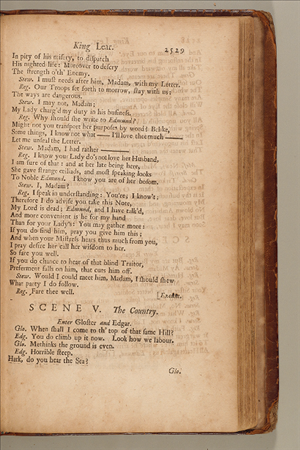 King Lear. 2529
In pity of his misery, to dispatch
His nighted life: Moreover to descry
The strength o'th' Enemy.
Stew. I must needs after him, Madam, with my Letter.
Reg. Our Troops set forth to morrow, stay with us;
The ways are dangerous.
Stew. I may not, Madam;
My Lady charg'd my duty in this business.
Reg. Why should she write to Edmund?
Might not you transport her purposes by word? Belike,
Some things, I know not what —— I'll love thee much ——
Let me unseal the Letter.
Stew. Madam, I had rather ——
Reg. I know your Lady do's not love her Husband,
I am sure of that: and at her late being here,
She gave strange œiliads, and most speaking looks
To Noble Edmund. I know you are of her bosom.
Stew. I, Madam?
Reg. I speak in understanding: You're; I know't;
Therefore I do advise you take this Note.
My Lord is dead; Edmund, and I have talk'd,
And more convenient is he for my hand
Than for your Lady's: You may gather more:
If you do find him, pray you give him this;
And when your Mistress hears thus much from you,
I pray desire her call her wisdom to her.
So fare you well.
If you do chance to hear of that blind Traitor,
Preferment falls on him, that cuts him off.
Stew. Would I could meet him, Madam, I should shew
What party I do follow.
Reg. Fare thee well. [Exeunt.
SCENE V. The Country.
Enter Gloster and Edgar.
Glo. When shall I come to th' top of that same Hill?
Edg. You do climb up it now. Look how we labour.
Glo. Methinks the ground is even.
Edg. Horrible steep.
Hark, do you hear the Sea?
Glo.